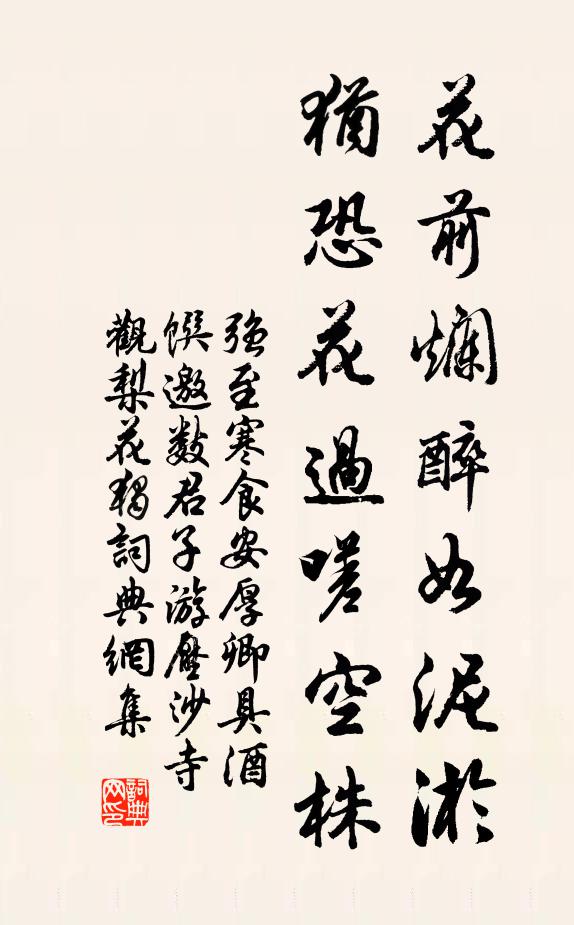 花前爛醉如泥淤
猶恐花過嗟空株
强至寒食安厚卿具酒
饌邀數君子游壓沙寺
觀梨花獨詞典網集
詞典网印